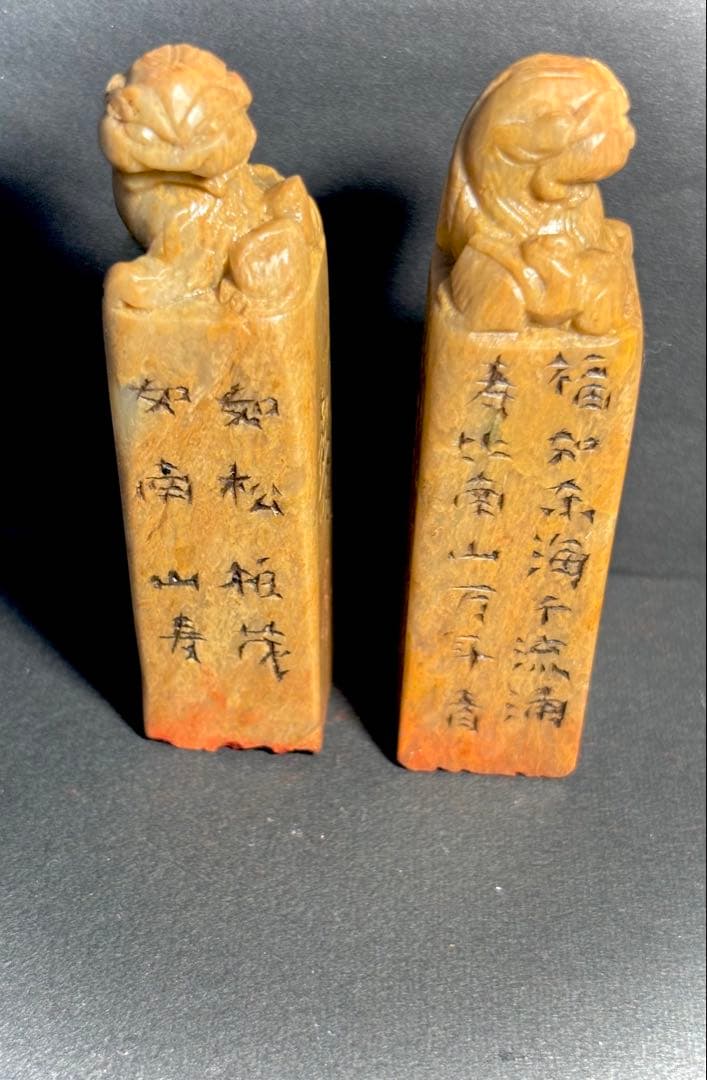 福如东海千流涌
寿比南山万年春
如松柏茂
如南山寿